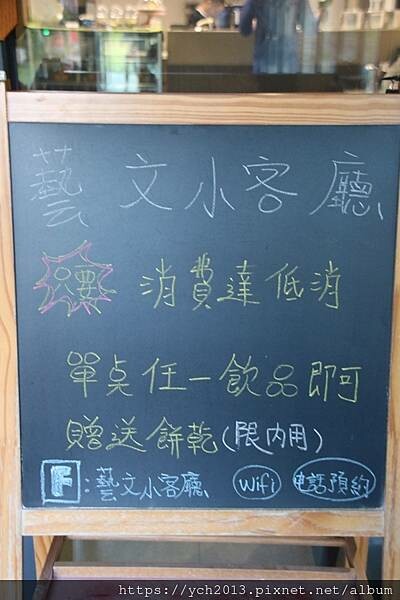 藝文小客廳
只要 消費達低消
單桌任一飲品即可
贈送餅乾(限內用)
F:藝文小客廳 Wifi 電話預約
https://ych2013.pixnet.net/album